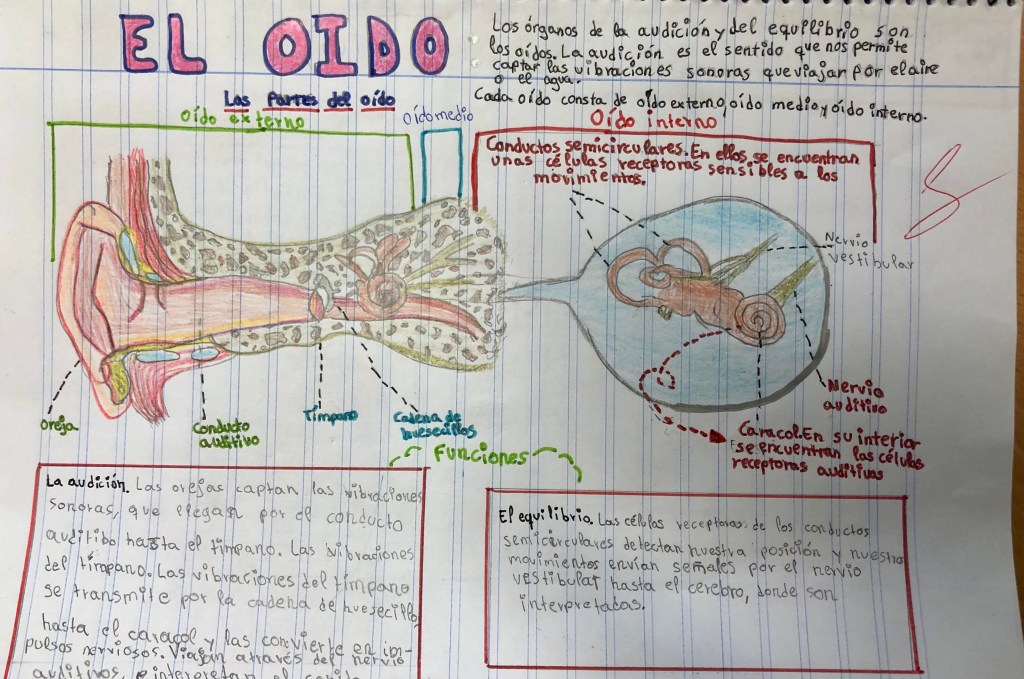 EL OIDO
Los órganos de la audición y del equilibrio son
los oídos. La audición es el sentido que nos permite
captar las vibraciones sonoras que viajar por el aire
o el agua.
Cada oído consta de oído externo, oído medio y oído interno.
Las partes del oído
oído externo
oído medio
Oído interno
Conductos semicirculares. En ellos se encuentran
unas células receptoras sensibles a los
movimientos.
Nervio
vestibular
Nervio
auditivo
Caracol. En su interior
se encuentran las células
receptoras auditivas
oreja
Conducto
auditivo
Tímpano
Cadena de
huesecillos
Funciones
La audición. Las orejas captan las vibraciones
sonoras, que llegan por el conducto
auditibo hasta el tímpano. Las vibraciones
del tímpano. Las vibraciones del tímpano
se transmite por la cadena de huesecillo
hasta el caracol y las convierte en im-
pulsos nerviosos. Viajan através del nervio
auditivos, e interpretan el
El equilibrio. Las células receptoras de los conductos
semicirculares detectan nuestra posición y nuestro
movimientos envían señales por el nervio
vestibular hasta el cerebro, donde son
interpretadas.